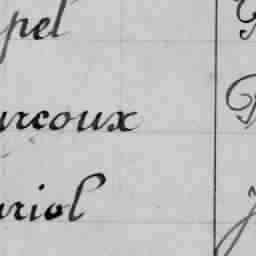 pel
urcoux
uriol